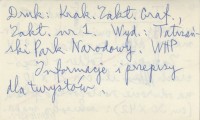 Druk: Krak. Zakł. Graf.,
Zakł. nr 1. Wyd.: Tatrzań-
ski Park Narodowy. WHP
Informacje i przepisy
dla turystów.